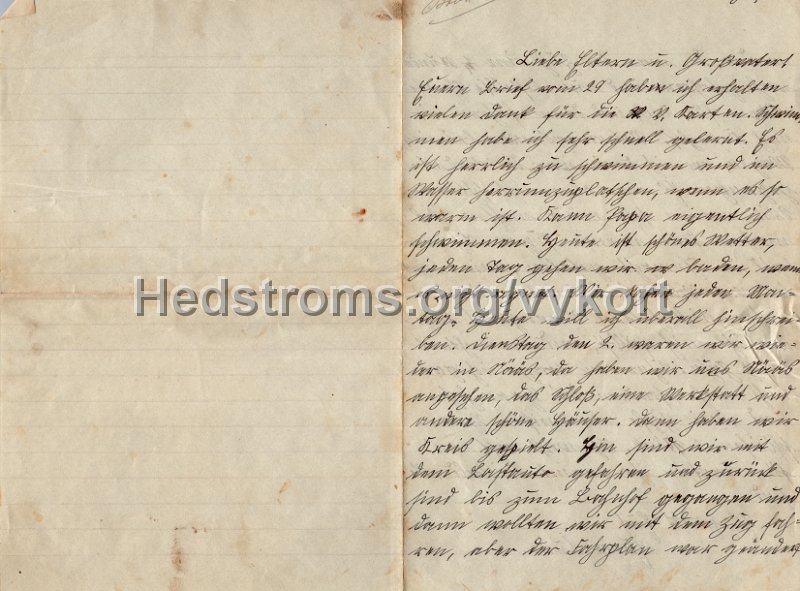 Liebe Eltern u. Großvater!
Euern Brief vom 29 habe ich erhalten
vielen Dank für die Karten. Schwim
men habe ich sehr schnell gelernt. Es
ist herrlich zu schwimmen und im
Wasser herrumzuplatschen, wenn es so
warm ist. Kann Papa eigentlich
schwimmen. Heute ist schönes Wetter,
jeden Tag gehen wir baden, wenn
jeden Mon-
tag. Heute will ich überall hinschrei-
ben. Dienstag den 2. waren wir wie-
der in Nääs, da haben wir uns Nääs
angesehen, das Schloß, eine Werkstatt und
andere schöne Häuser. Dann haben wir
Kreis gespielt. Hin sind wir mit
dem Lastauto gefahren und zurück
sind bis zum Bahnhof gegangen und
dann wollten wir mit dem Zug fah-
ren, aber der Fahrplan war geändert
Hedstroms.org/vykort